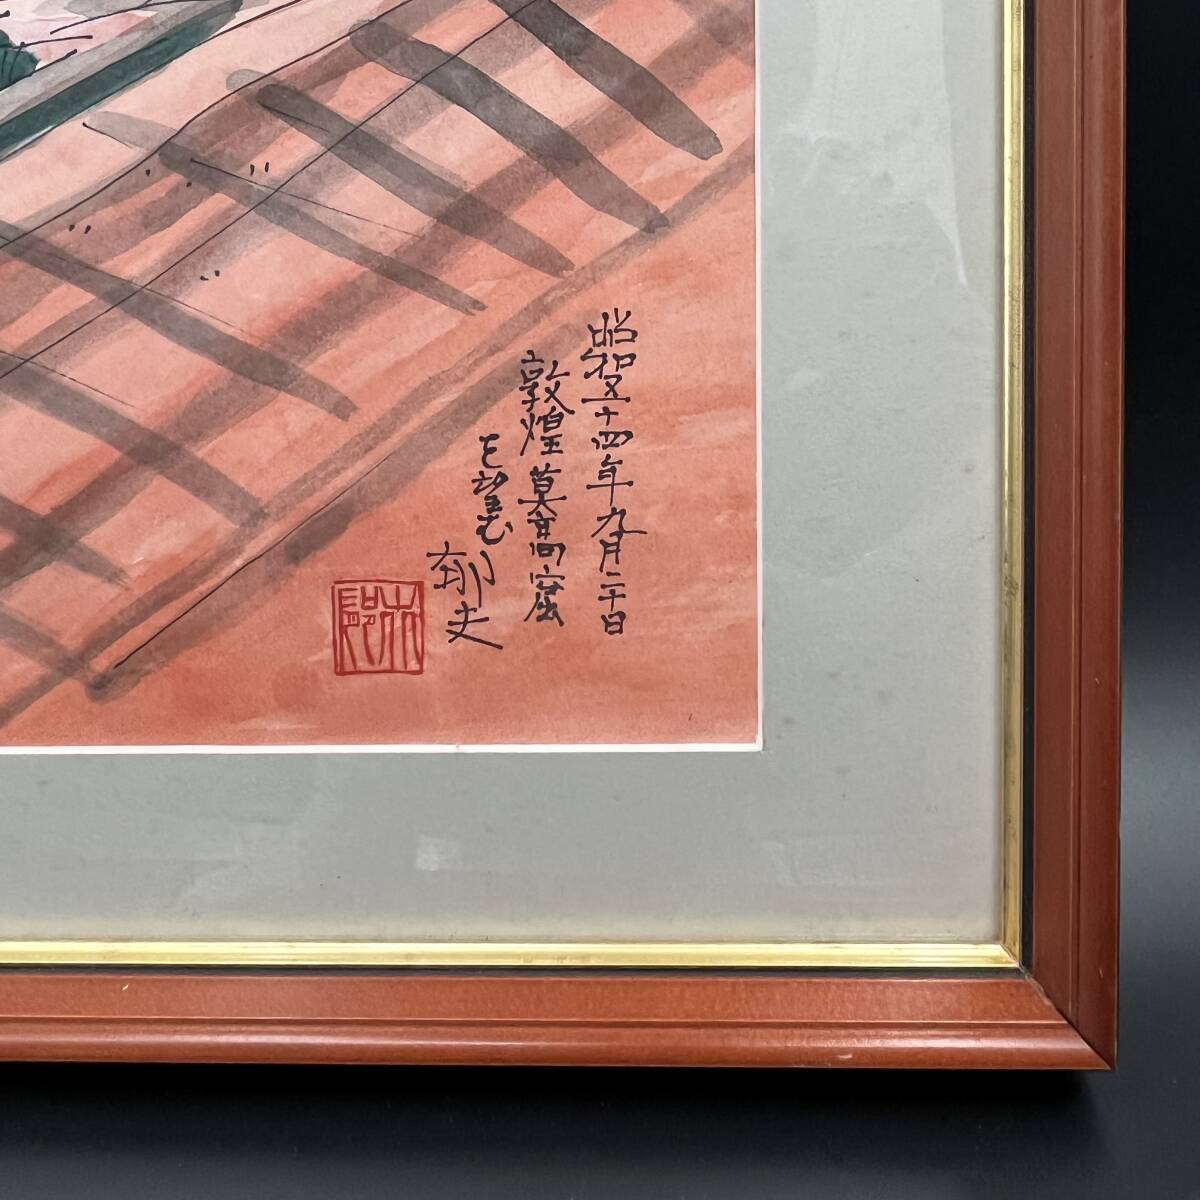 昭和五十四年九月二十日
敦煌莫高窟
を望む
郁夫